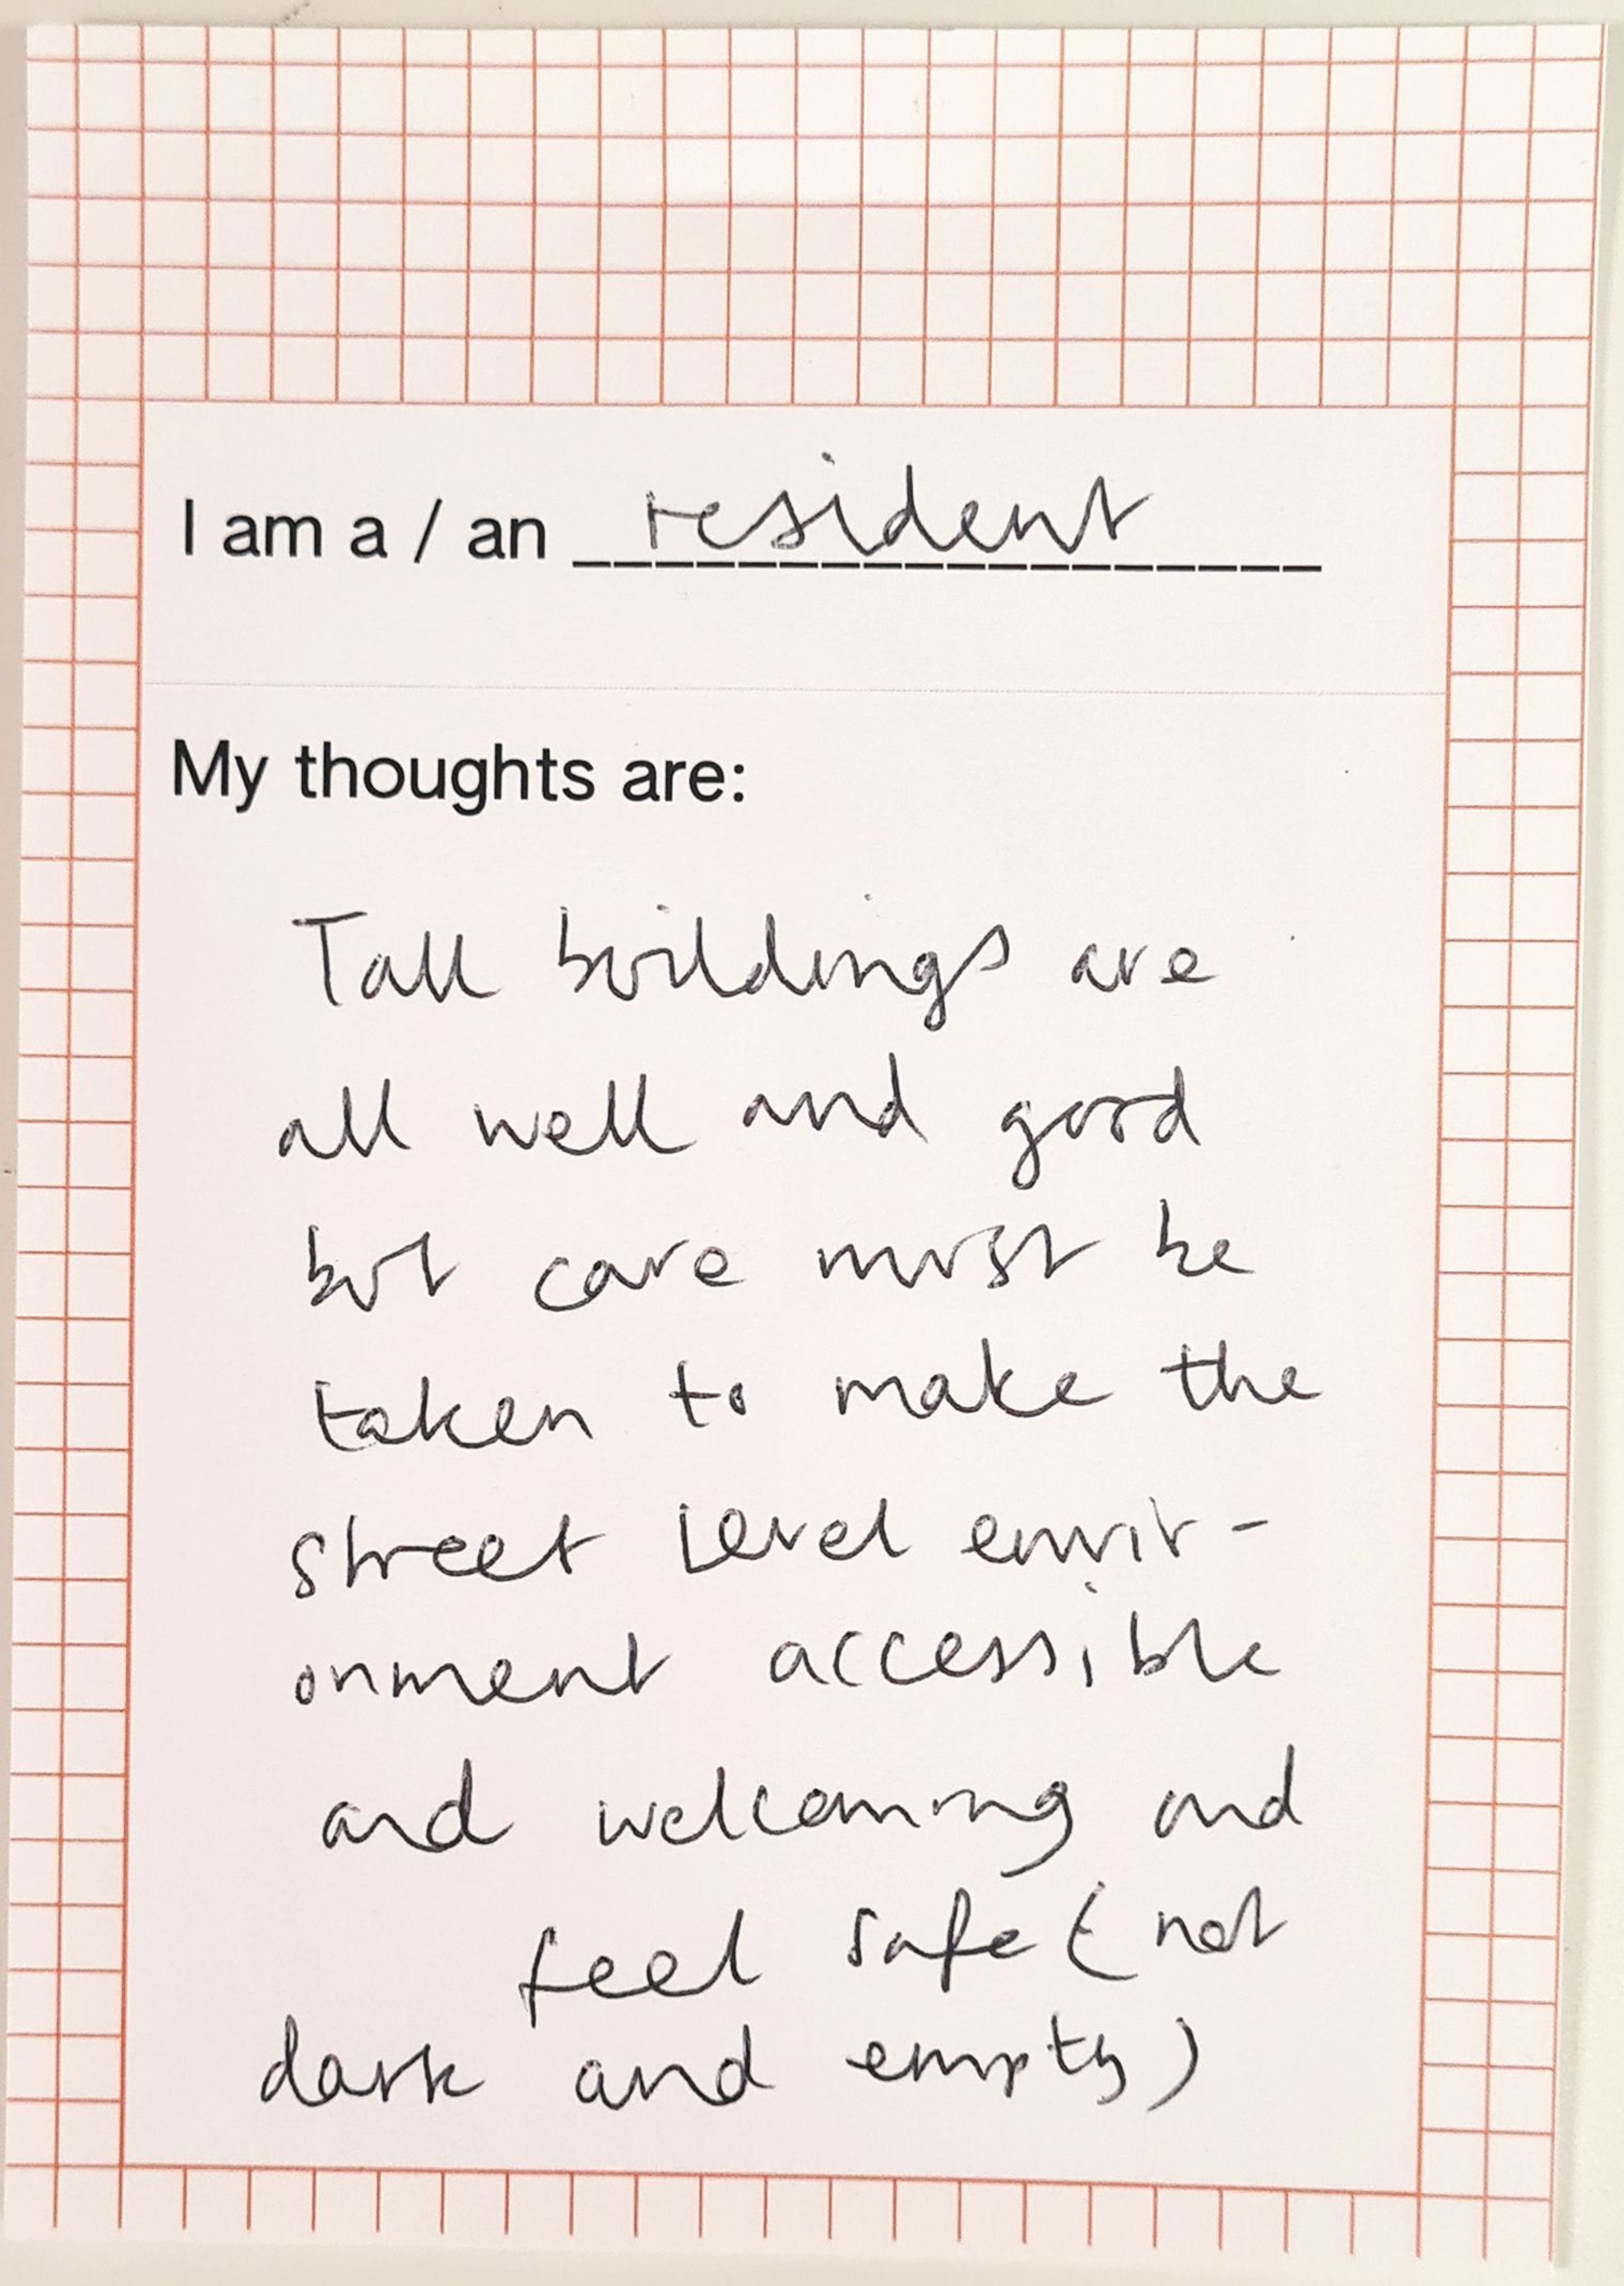 I am a / an resident
My thoughts are:
Tall buildings are
all well and good
but care must be
taken to make the
street level envir-
onment accessible
and welcoming and
feel safe (not
dark and empty)